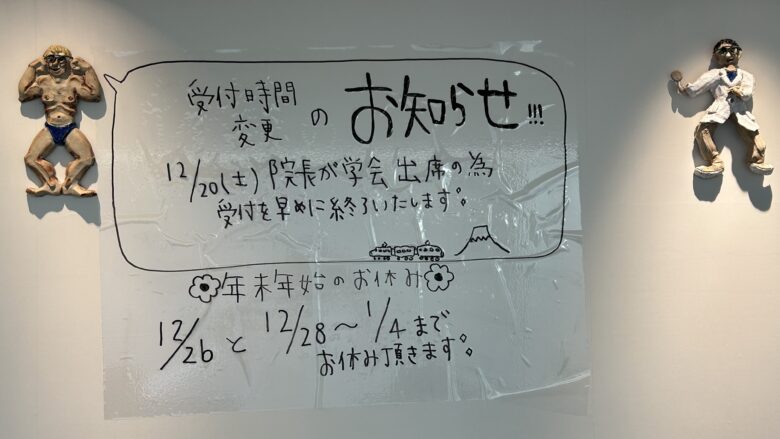 受付時間変更のお知らせ!!!
12/20(土)院長が学会出席の為
受付を早めに終了いたします。
年末年始のお休み
12/26と12/28～1/4まで
お休み頂きます。